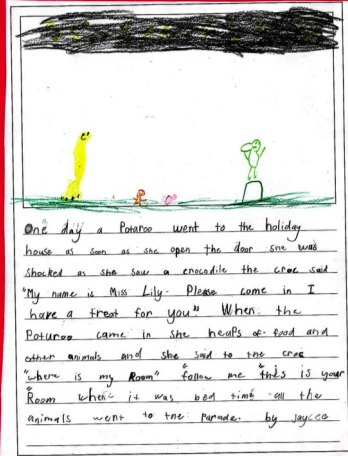 One day a Potaroo went to the holiday
house as soon as she open the door she was
shocked as she saw a crocodile the croc said
"My name is Miss Lily. Please come in I
have a treat for you" When the
Potaroo came in she heaps of food and
other animals and she said to the croc
"where is my Room" "follow me "this is your
Room when it was bed time all the
animals went to the Parade. by Jaycee